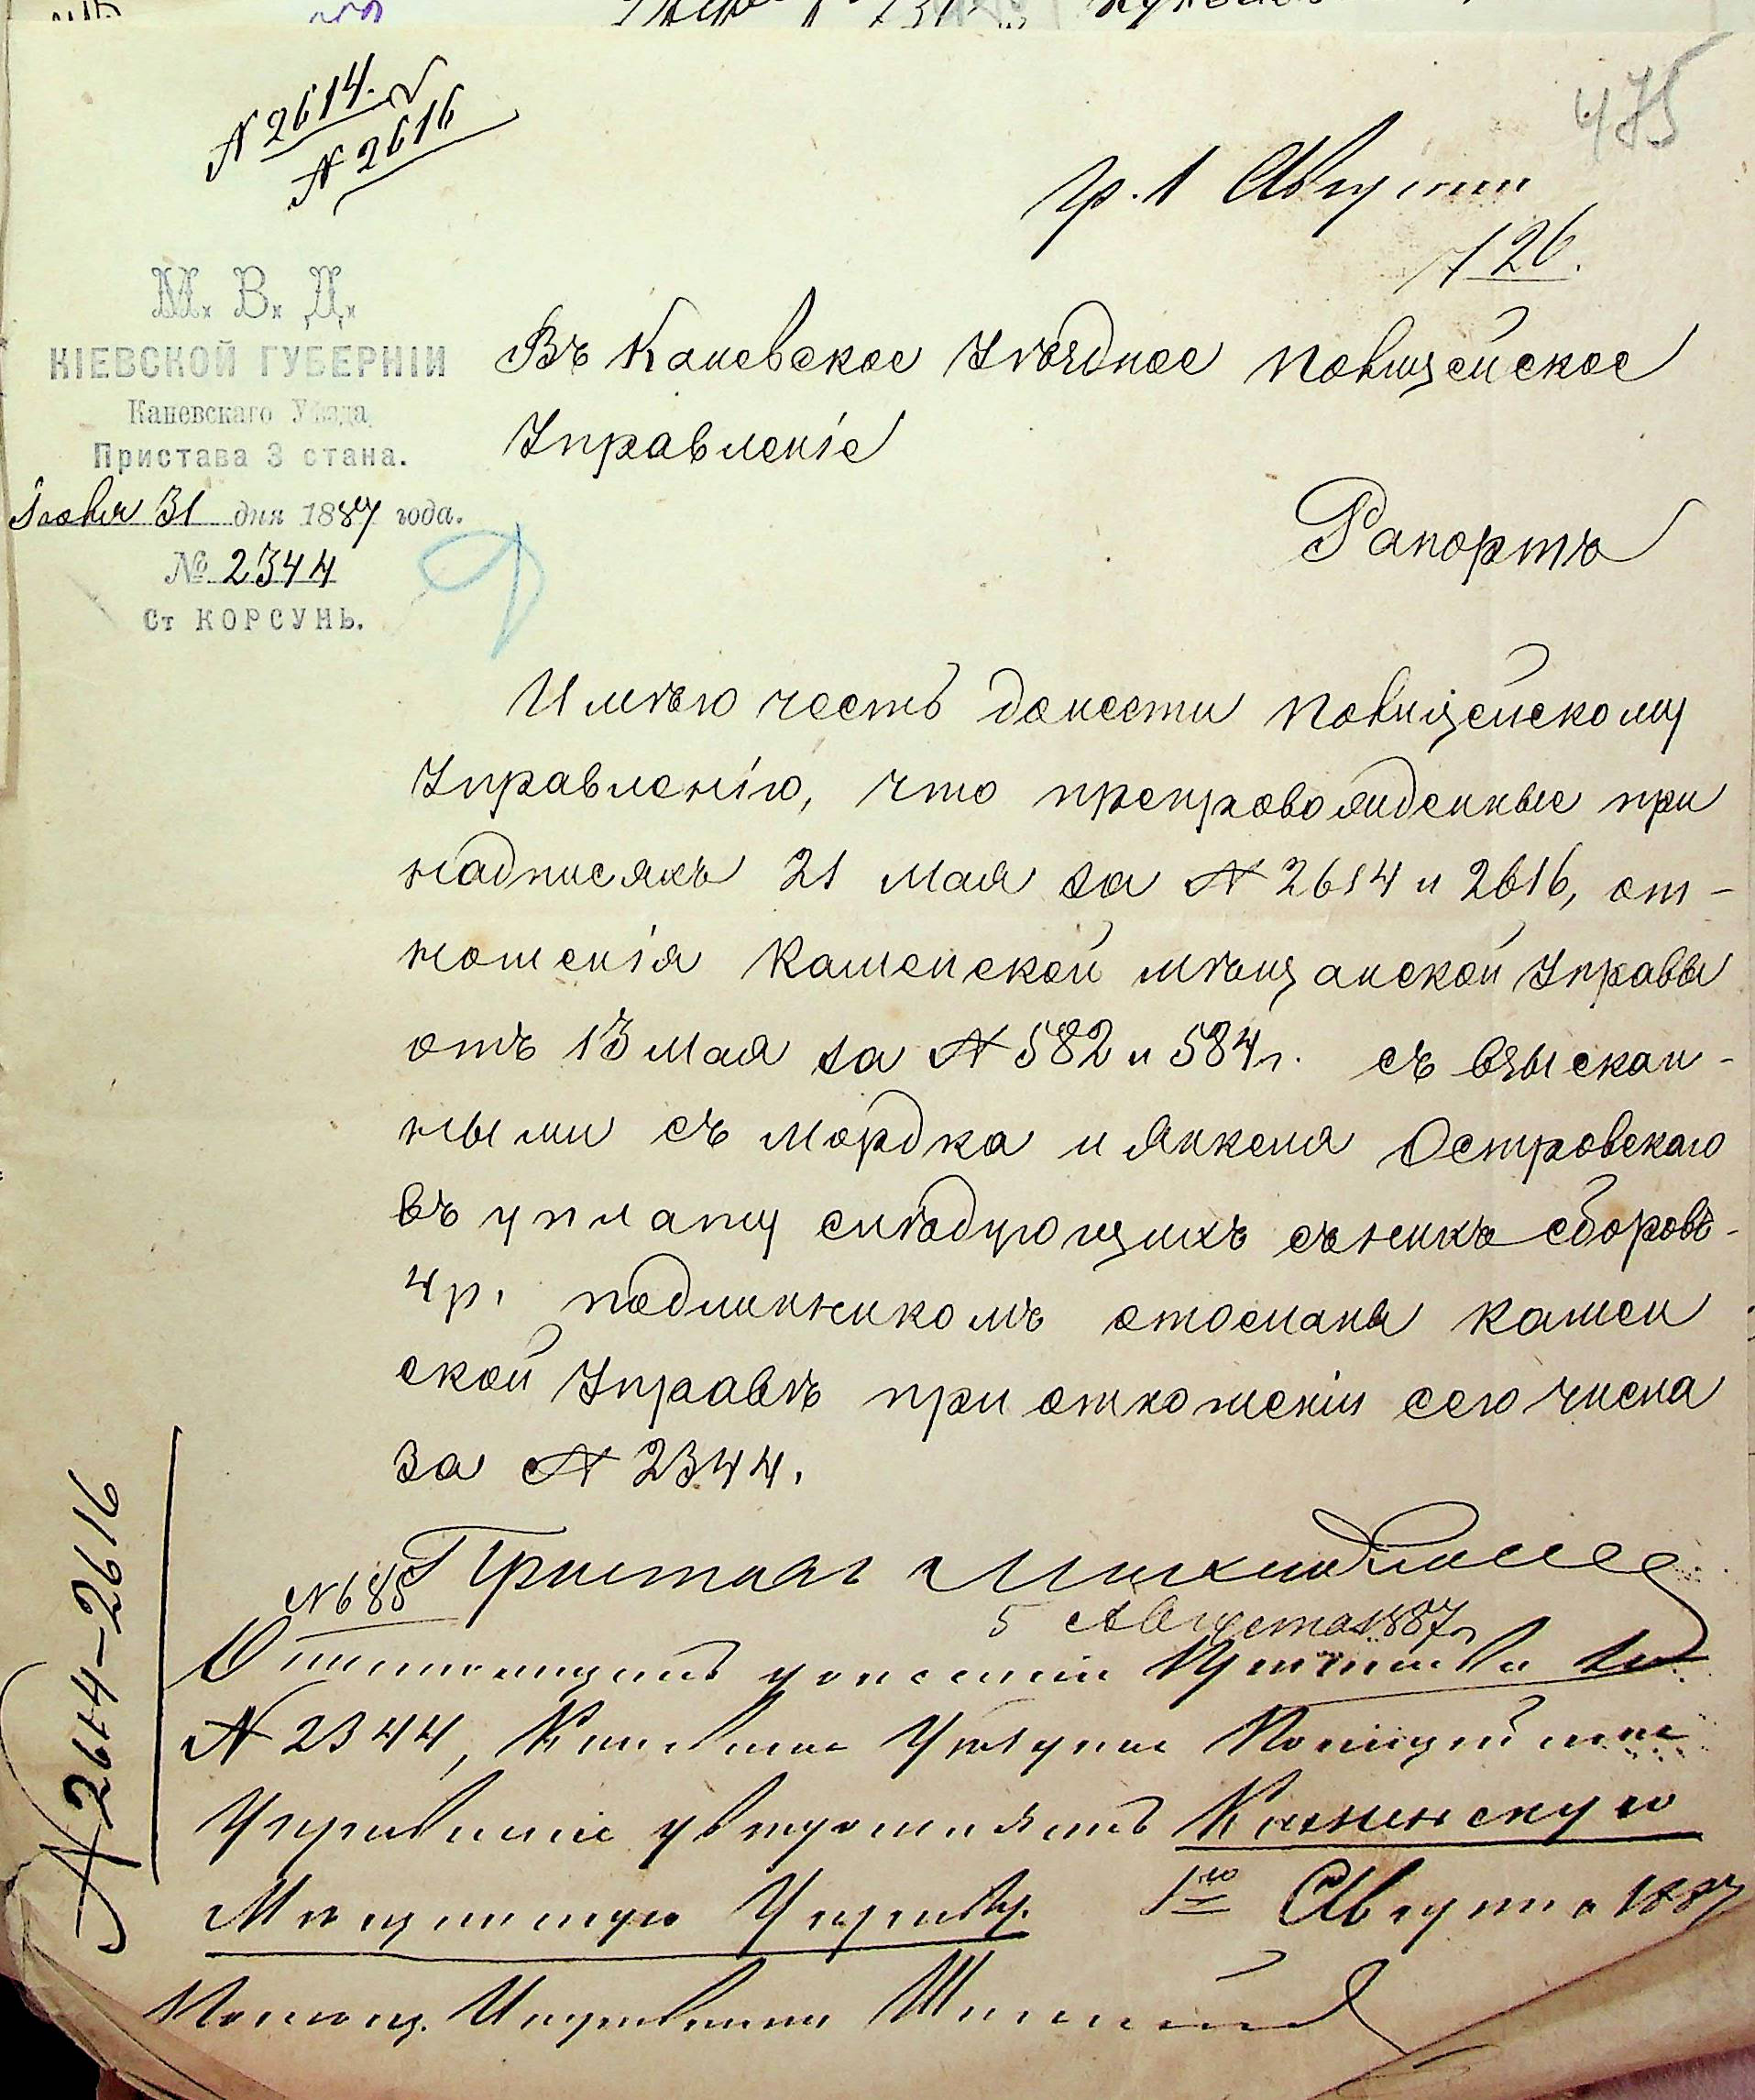 № 2614.
№ 2616
475
пр. 1 Августа
126.
М. В. Д.
КІЕВСКОЙ ГУБЕРНІИ
Каневскаго Уѣзда
Пристава 3 стана.
Іюля 31 дня 1887 года.
№ 2344
Ст КОРСУНЬ.
Въ Каневское Уѣздное Полицейское
Управленіе
Рапортъ
Имѣю честь донести Полицейскому
Управленію, что препровожденные при
надписяхъ 21 Мая за № 2614 и 2616, от-
ношенія Каменской мѣщанской Управы
отъ 13 Мая за № 582 и 584 г. съ взыскан-
ными съ Мордка и Янкеля Островскаго
въ уплату слѣдующихъ съ нихъ сборовъ-
4 р. подлинникомъ отосланы Камен
ской Управѣ при отношеніи сего числа
за № 2344.
Приставъ
№ 685
5 Августа 1887 г.
О послѣдующемъ донесеніи Пристава за
№ 2344, Каневское Уѣздное Полицейское
Управленіе увѣдомляетъ Каменскую
Мѣщанскую Управу. 1го Августа 1887
Помощ. Исправника
№ 2614-2616